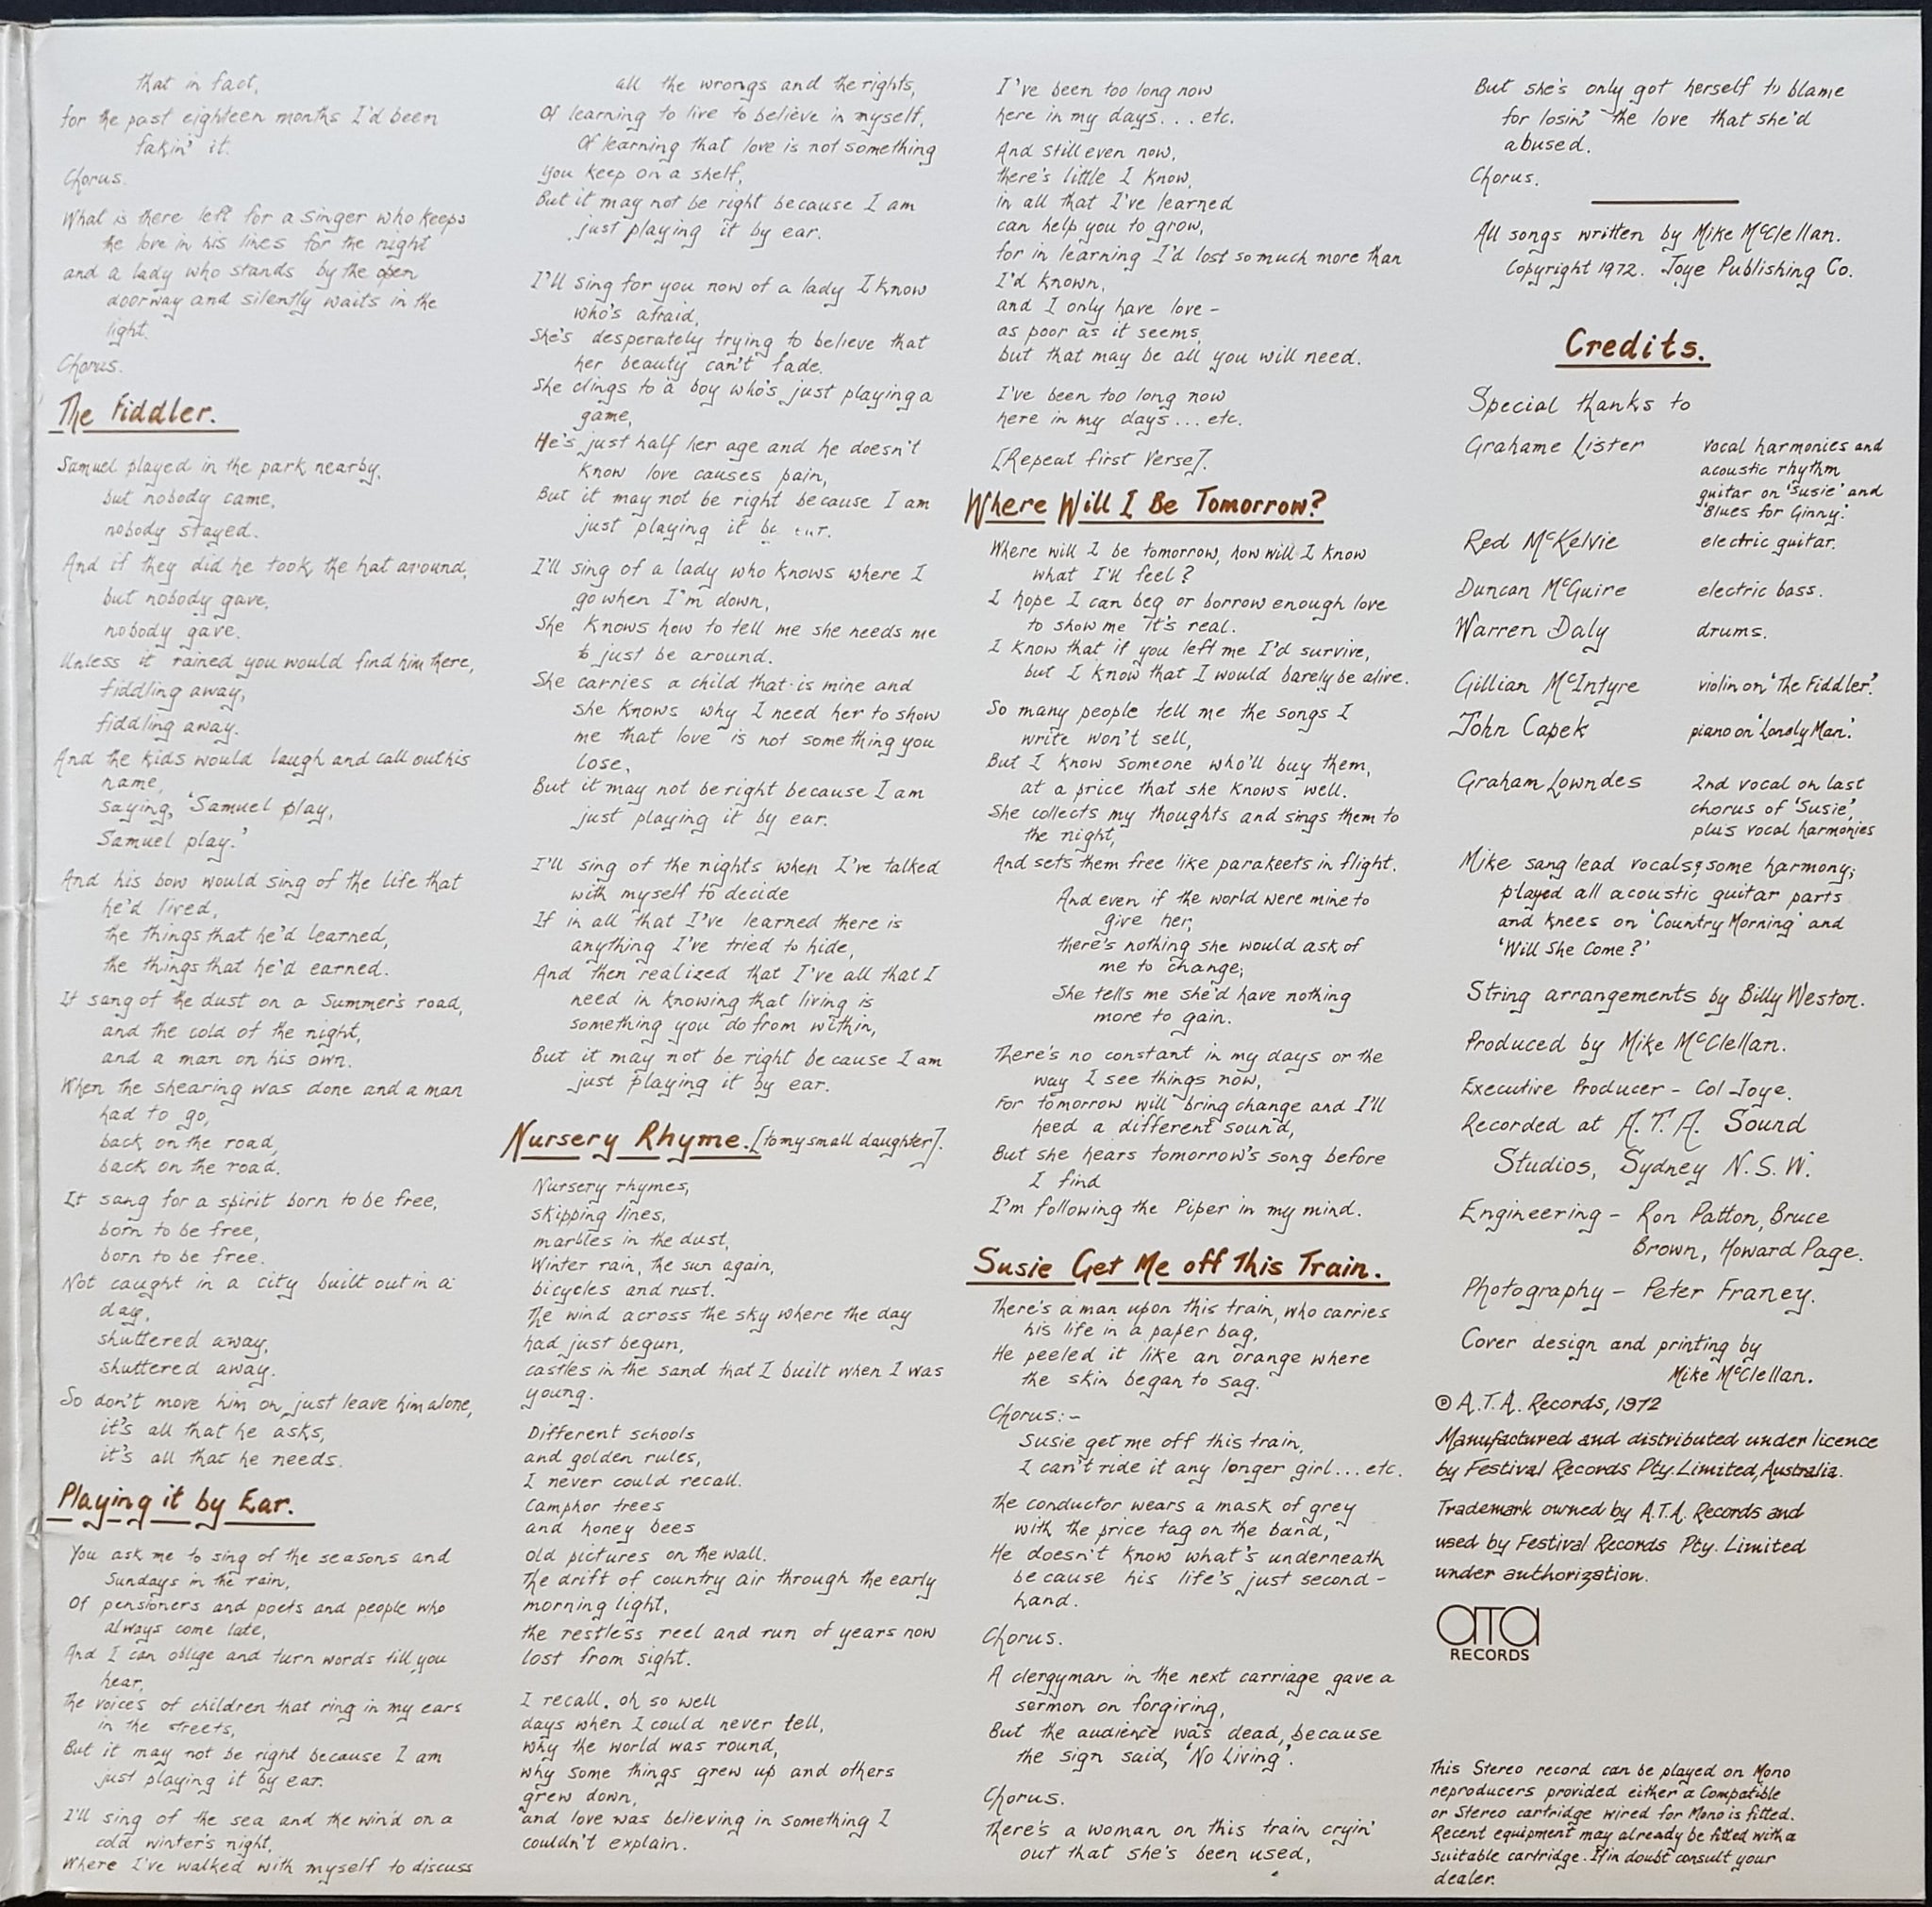 that in fact,
for the past eighteen months I'd been
fakin' it.
Chorus.
What is there left for a singer who keeps
the love in his lines for the night
and a lady who stands by the open
doorway and silently waits in the
light.
Chorus.
The Fiddler.
Samuel played in the park nearby,
but nobody came,
nobody stayed.
And if they did he took the hat around,
but nobody gave,
nobody gave.
Unless it rained you would find him there,
fiddling away,
fiddling away.
And the kids would laugh and call out his
name,
saying, 'Samuel play,
Samuel play.'
And his bow would sing of the life that
he'd lived,
the things that he'd learned,
the things that he'd earned.
It sang of the dust on a Summer's road,
and the cold of the night,
and a man on his own.
When the shearing was done and a man
had to go,
back on the road,
back on the road.
It sang for a spirit born to be free,
born to be free,
born to be free.
Not caught in a city built out in a
day,
shuttered away,
shuttered away.
So don't move him on, just leave him alone,
it's all that he asks,
it's all that he needs.
Playing it by Ear.
You ask me to sing of the seasons and
Sundays in the rain,
Of pensioners and poets and people who
always come late,
And I can oblige and turn words till you
hear,
The voices of children that ring in my ears
in the streets,
But it may not be right because I am
just playing it by ear.
I'll sing of the sea and the wind on a
cold winter's night,
Where I've walked with myself to discuss
all the wrongs and the rights,
Of learning to live to believe in myself,
Of learning that love is not something
you keep on a shelf,
But it may not be right because I am
just playing it by ear.
I'll sing for you now of a lady I know
who's afraid,
She's desperately trying to believe that
her beauty can't fade.
She clings to a boy who's just playing a
game,
He's just half her age and he doesn't
know love causes pain,
But it may not be right because I am
just playing it
I'll sing of a lady who knows where I
go when I'm down,
She knows how to tell me she needs me
to just be around.
She carries a child that is mine and
she knows why I need her to show
me that love is not something you
lose,
But it may not be right because I am
just playing it by ear.
I'll sing of the nights when I've talked
with myself to decide
If in all that I've learned there is
anything I've tried to hide,
And then realized that I've all that I
need in knowing that living is
something you do from within,
But it may not be right because I am
just playing it by ear.
Nursery Rhyme. [to my small daughter].
Nursery rhymes,
skipping lines,
marbles in the dust,
Winter rain, the sun again,
bicycles and rust.
The wind across the sky where the day
had just begun,
castles in the sand that I built when I was
young.
Different schools
and golden rules,
I never could recall.
Camphor trees
and honey bees
old pictures on the wall.
The drift of country air through the early
morning light,
the restless reel and run of years now
lost from sight.
I recall, oh so well
days when I could never tell,
why the world was round,
why some things grew up and others
grew down,
and love was believing in something I
couldn't explain.
I've been too long now
here in my days... etc.
And still even now,
there's little I know,
in all that I've learned
can help you to grow,
for in learning I'd lost so much more than
I'd known,
and I only have love -
as poor as it seems,
but that may be all you will need.
I've been too long now
here in my days... etc.
[Repeat first Verse].
Where Will I Be Tomorrow?
Where will I be tomorrow, how will I know
what I'll feel?
I hope I can beg or borrow enough love
to show me it's real.
I know that if you left me I'd survive,
but I know that I would barely be alive.
So many people tell me the songs I
write won't sell,
But I know someone who'll buy them,
at a price that she knows well.
She collects my thoughts and sings them to
the night,
And sets them free like parakeets in flight.
And even if the world were mine to
give her,
there's nothing she would ask of
me to change;
She tells me she'd have nothing
more to gain.
There's no constant in my days or the
way I see things now,
For tomorrow will bring change and I'll
heed a different sound,
But she hears tomorrow's song before
I find
I'm following the Piper in my mind.
Susie Get Me off This Train.
There's a man upon this train, who carries
his life in a paper bag,
He peeled it like an orange where
the skin began to sag.
Chorus:-
Susie get me off this train,
I can't ride it any longer girl... etc.
The conductor wears a mask of grey
with the price tag on the band,
He doesn't know what's underneath
because his life's just second-
hand.
Chorus.
A clergyman in the next carriage gave a
sermon on forgiving,
But the audience was dead, because
the sign said, 'No Living'.
Chorus.
There's a woman on this train cryin'
out that she's been used,
But she's only got herself to blame
for losin' the love that she'd
abused.
Chorus.
All songs written by Mike McClellan.
Copyright 1972. Joye Publishing Co.
Credits.
Special thanks to
Grahame Lister vocal harmonies and
acoustic rhythm
guitar on 'Susie' and
'Blues for Ginny'.
Red McKelvie electric guitar.
Duncan McGuire electric bass.
Warren Daly drums.
Gillian McIntyre violin on 'The Fiddler'.
John Capek piano on 'Lonely Man'.
Graham Lowndes 2nd vocal on last
chorus of 'Susie',
plus vocal harmonies
Mike sang lead vocals & some harmony;
played all acoustic guitar parts
and knees on 'Country Morning' and
'Will She Come?'
String arrangements by Billy Weston.
Produced by Mike McClellan.
Executive Producer - Col Joye.
Recorded at A.T.A. Sound
Studios, Sydney N.S.W.
Engineering - Ron Patton, Bruce
Brown, Howard Page.
Photography - Peter Franey.
Cover design and printing by
Mike McClellan.
℗ A.T.A. Records, 1972
Manufactured and distributed under licence
by Festival Records Pty. Limited, Australia.
Trademark owned by A.T.A. Records and
used by Festival Records Pty. Limited
under authorization.
ATA
RECORDS
This Stereo record can be played on Mono
reproducers provided either a Compatible
or Stereo cartridge wired for Mono is fitted.
Recent equipment may already be fitted with a
suitable cartridge. If in doubt consult your
dealer.